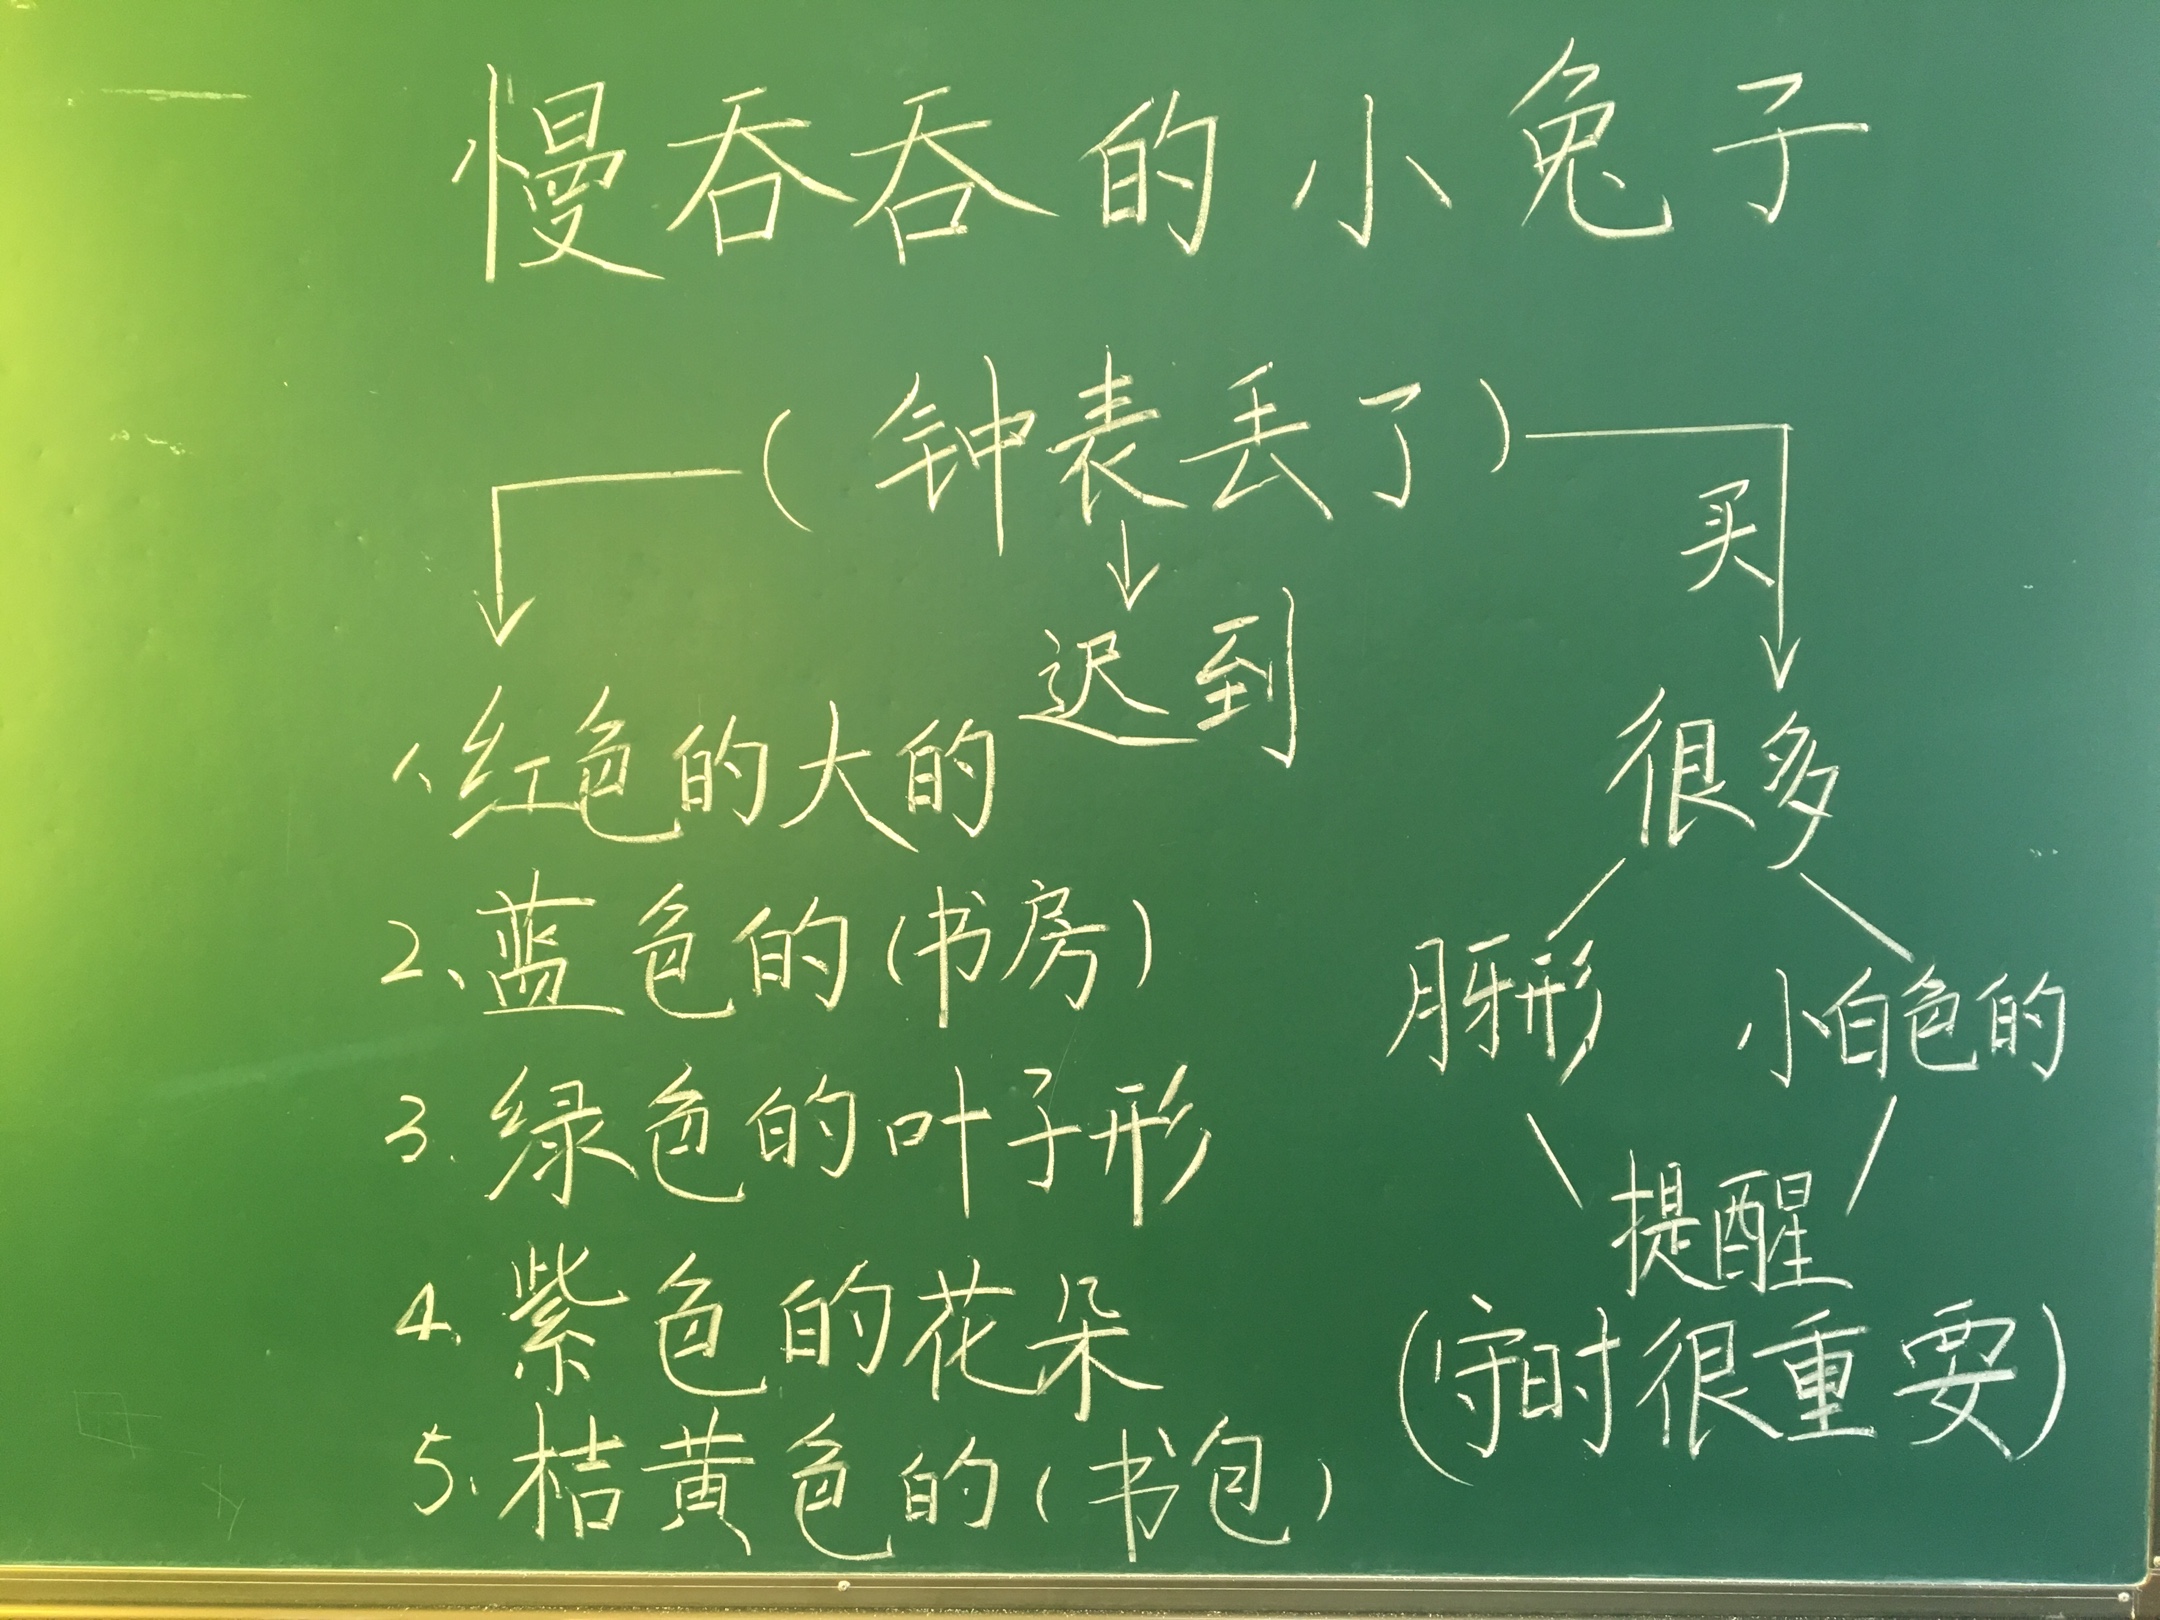 慢吞吞的小兔子
(钟表丢了)
买
迟到
1、红色的大的
2、蓝色的(书房)
3.绿色的叶子形
4.紫色的花朵
5.桔黄色的(书包)
很多
月牙形 小白色的
提醒
(守时很重要)